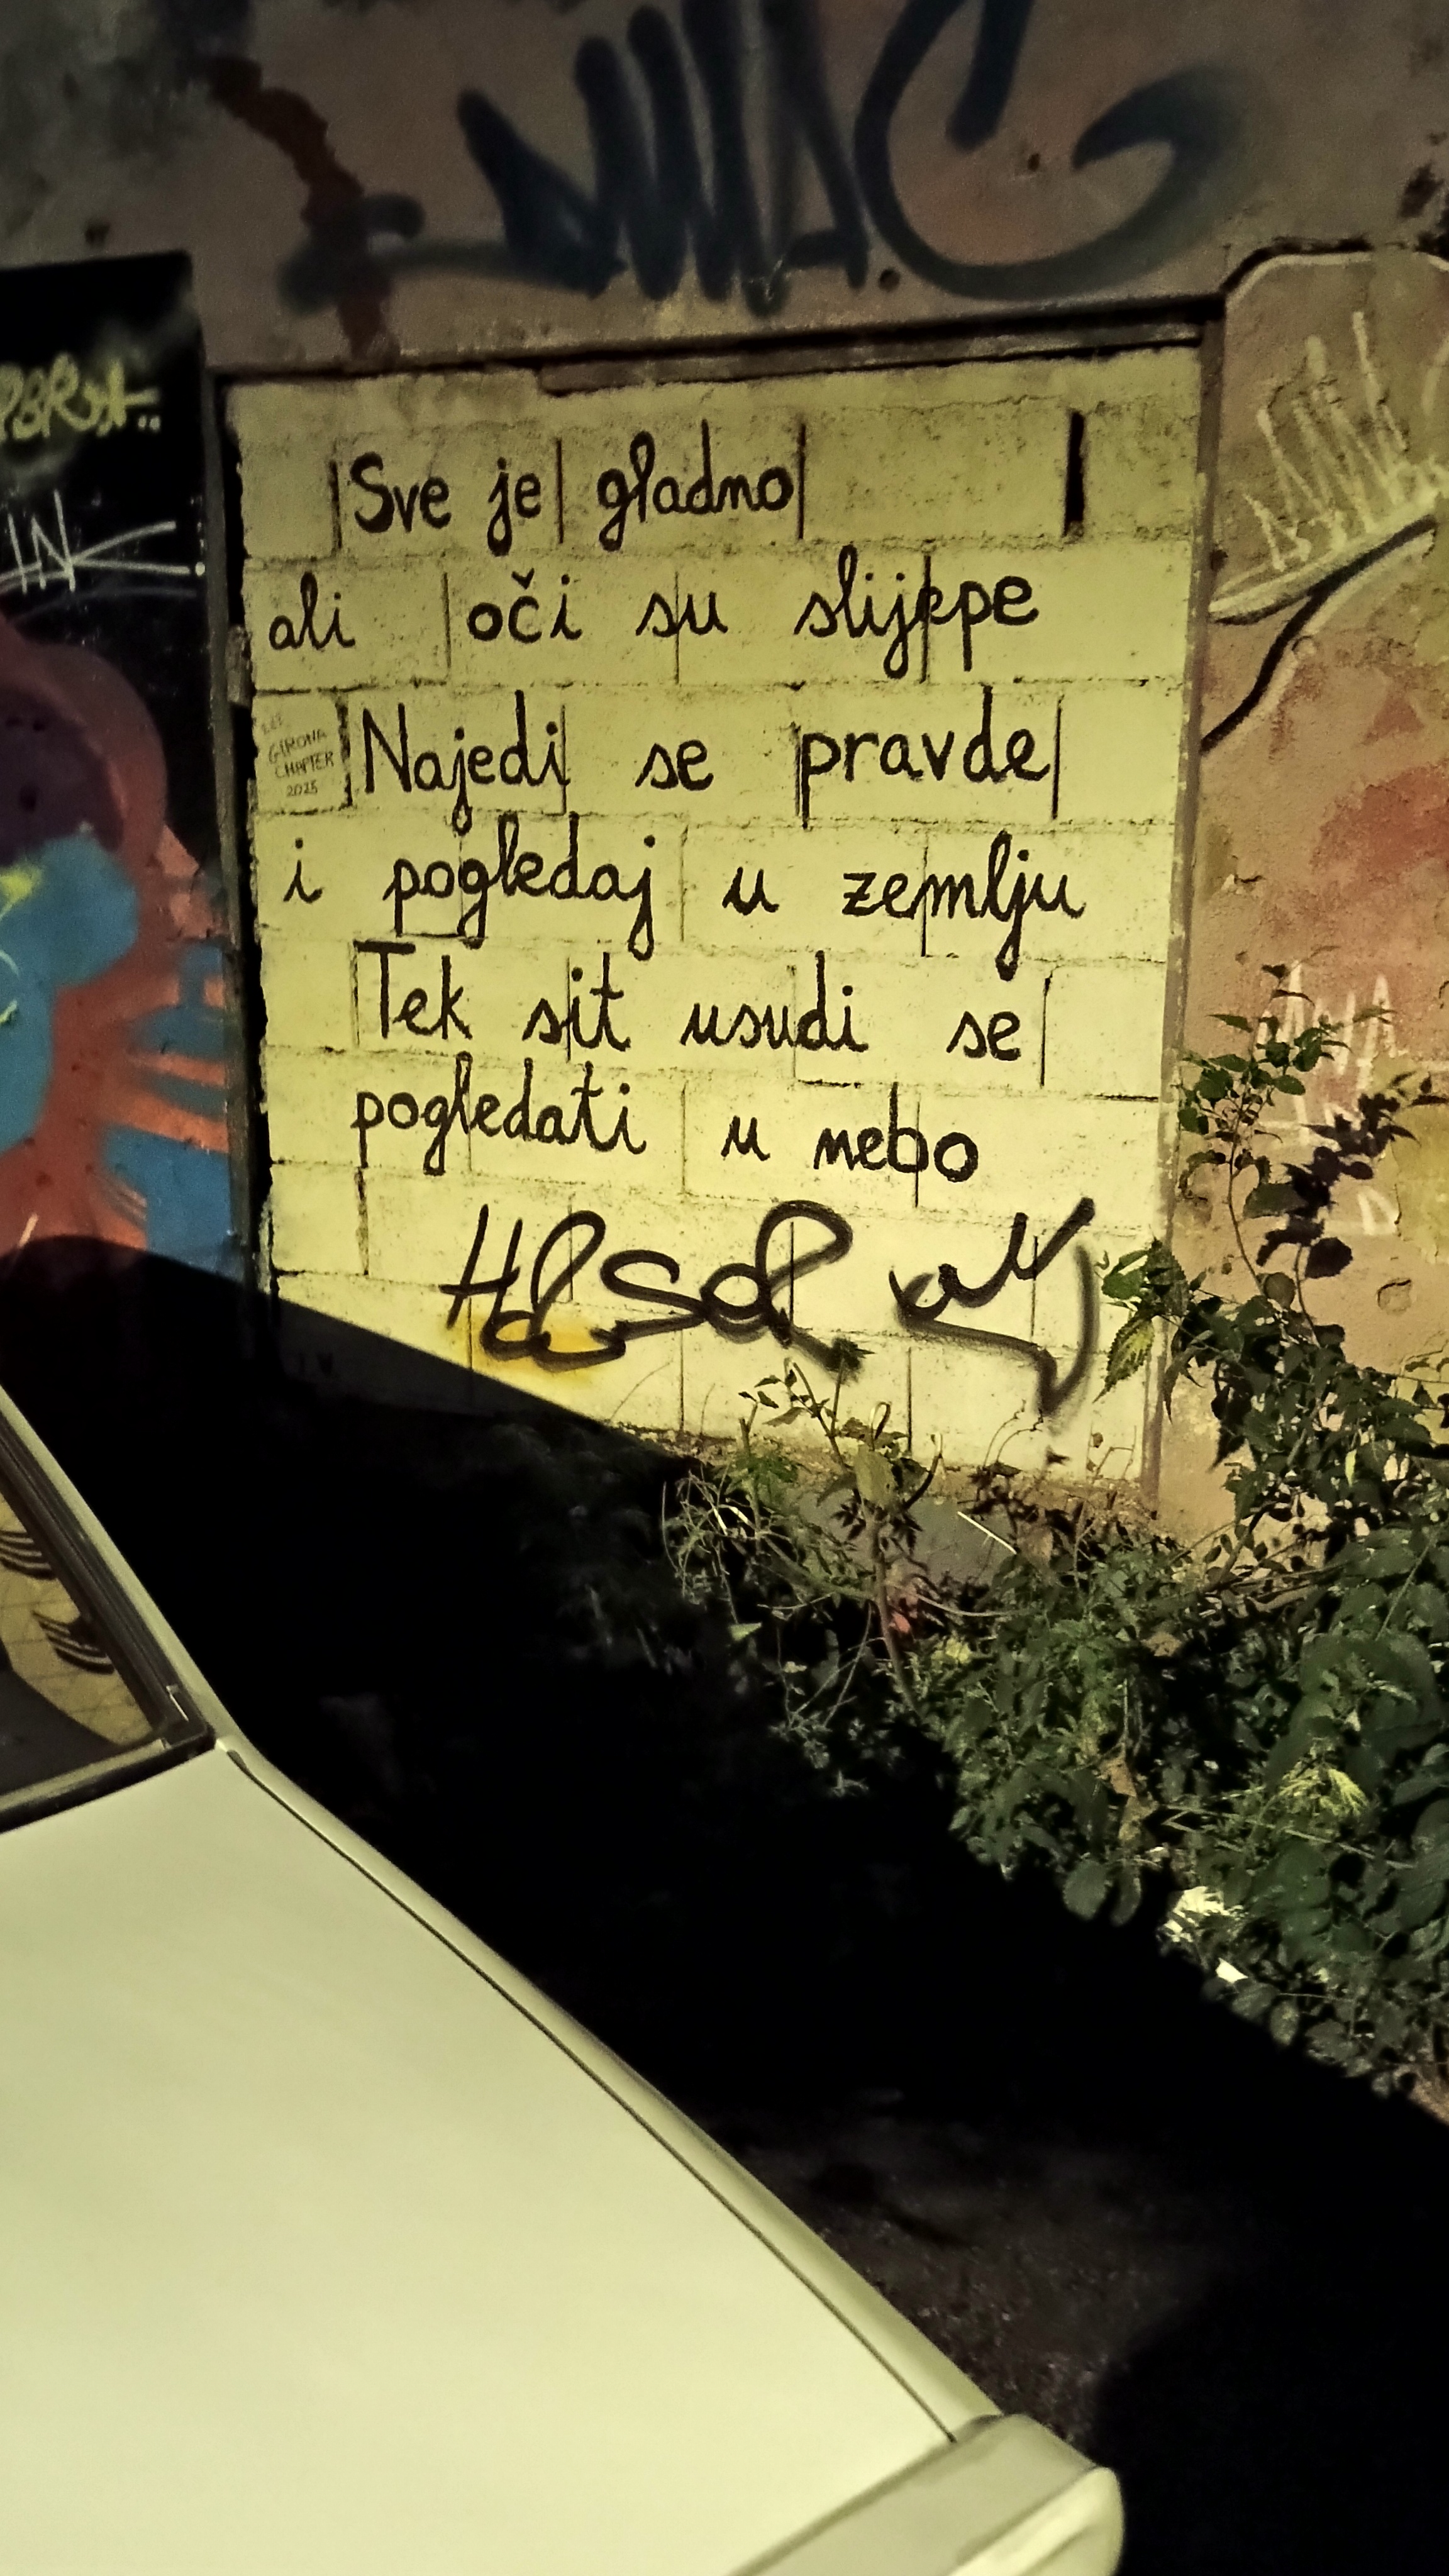 Sve je gladno
ali oči su slijepe
GIRONA
CHAPTER
2025
Najedi se pravde
i pogledaj u zemlju
Tek sit usudi se
pogledati u nebo